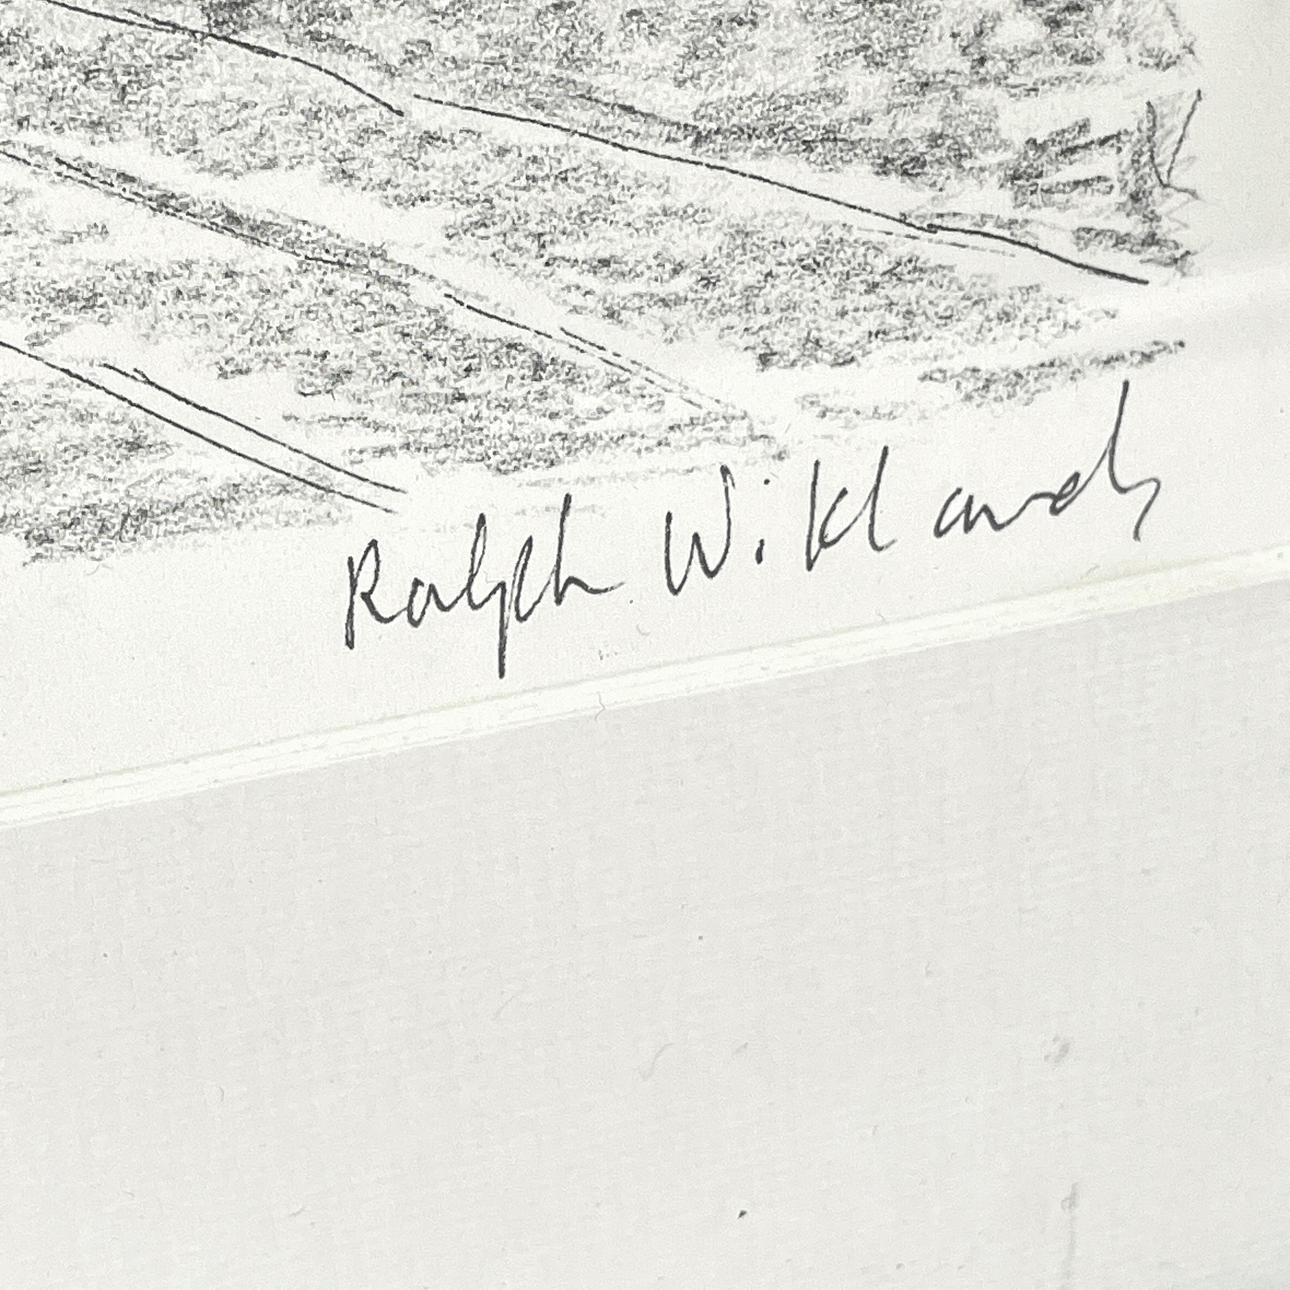 Ralph Wiklands